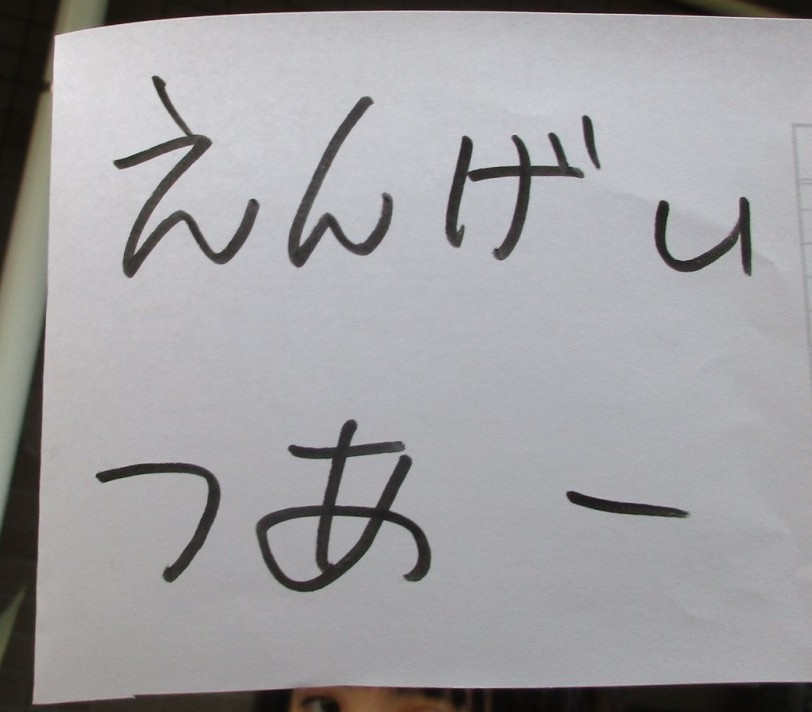 えんげい
つあー